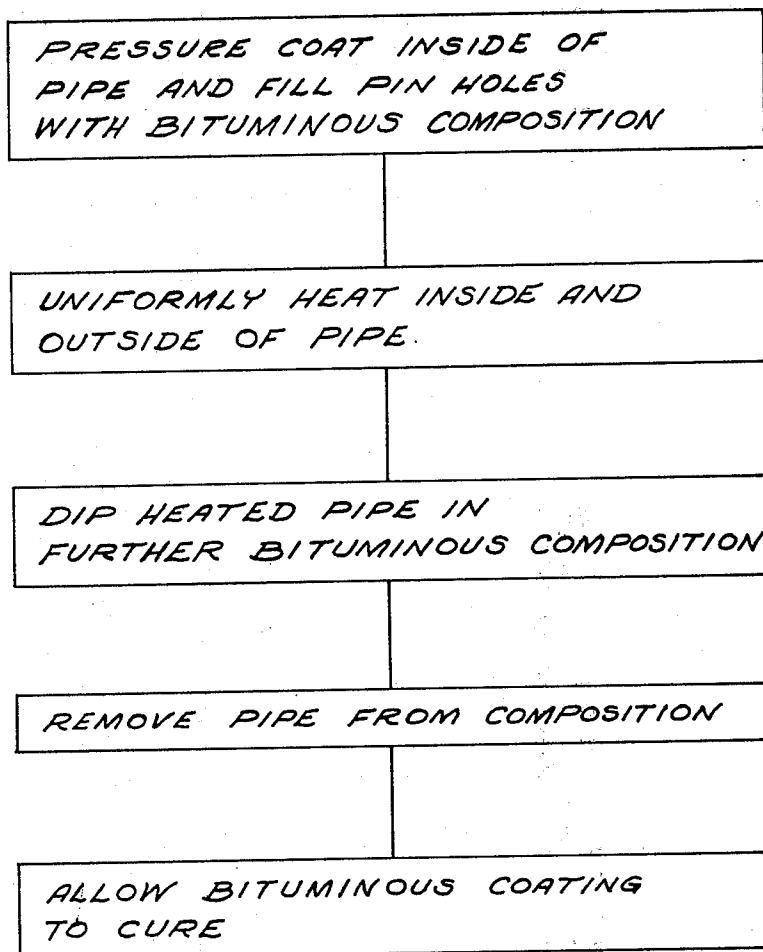 PRESSURE COAT INSIDE OF
PIPE AND FILL PIN HOLES
WITH BITUMINOUS COMPOSITION
UNIFORMLY HEAT INSIDE AND
OUTSIDE OF PIPE.
DIP HEATED PIPE IN
FURTHER BITUMINOUS COMPOSITION
REMOVE PIPE FROM COMPOSITION
ALLOW BITUMINOUS COATING
TO CURE